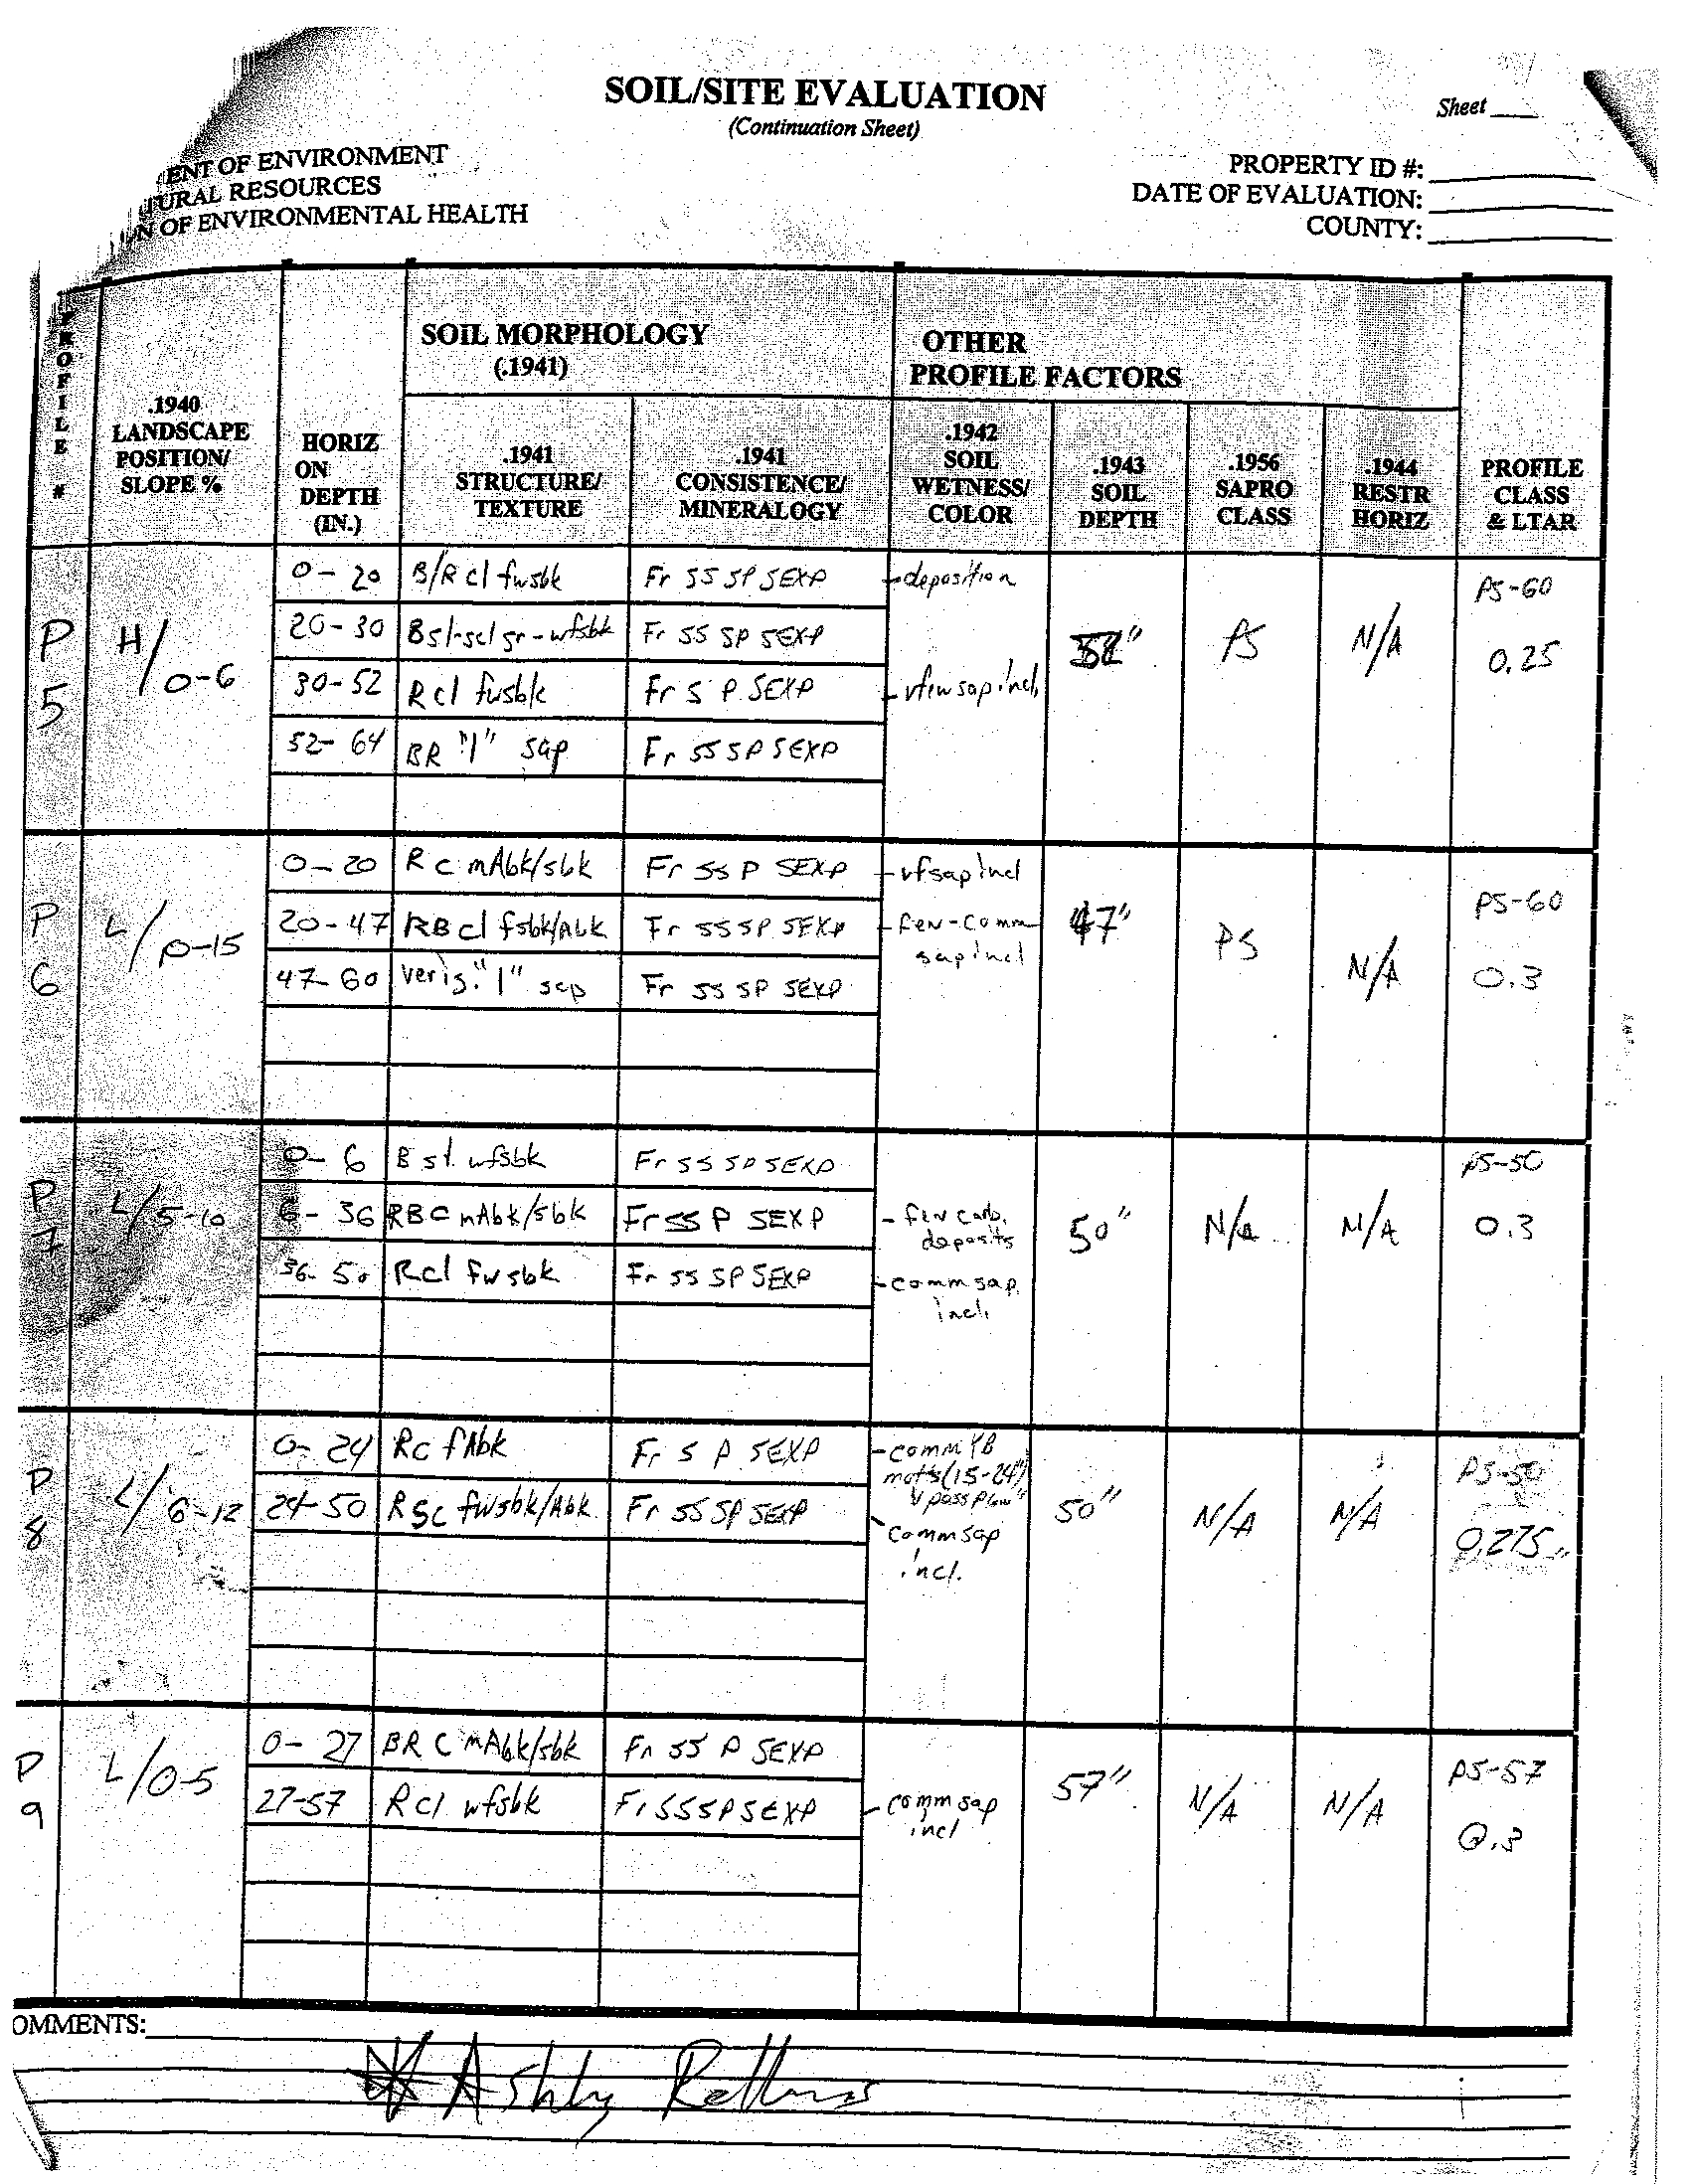 SOIL/SITE EVALUATION
(Continuation Sheet)
Sheet
ENT OF ENVIRONMENT
URAL RESOURCES
N OF ENVIRONMENTAL HEALTH
PROPERTY ID #:
DATE OF EVALUATION:
COUNTY:
PROFILE #
.1940 LANDSCAPE POSITION/ SLOPE %
HORIZ ON DEPTH (IN.)
SOIL MORPHOLOGY (.1941)
OTHER PROFILE FACTORS
.1941 STRUCTURE/ TEXTURE
.1941 CONSISTENCE/ MINERALOGY
.1942 SOIL WETNESS/ COLOR
.1943 SOIL DEPTH
.1956 SAPRO CLASS
.1944 RESTR HORIZ
PROFILE CLASS & LTAR
P 5 H/0-6 PS N/A PS-60 0.25
0-20 B/R cl fwsbk Fr SS SP SEXP -deposition
20-30 Bsl-scl gr-wfsbk Fr SS SP SEXP
30-52 R cl fwsbk Fr S P SEXP -vfew sap incl.
52-64 BR "l" sap Fr SS SP SEXP
P 6 L/0-15 47" PS N/A PS-60 0.3
0-20 R c mAbk/sbk Fr SS P SEXP -vf sap incl
20-47 RB cl fsbk/Abk Fr SS SP SEXP -few-comm sap incl
47-60 "l" sap Fr SS SP SEXP
P 7 L/5-10 50" N/A N/A PS-50 0.3
0-6 B wfsbk Fr SS SP SEXP
6-36 RB C mAbk/sbk Fr SS P SEXP -few carb. deposits
36-50 R cl fwsbk Fr SS SP SEXP -comm sap. incl.
P 8 L/6-12 50" N/A N/A PS-50 0.275
0-24 R c fAbk Fr S P SEXP -comm YB mott's (15-24")
24-50 R SC fwsbk/Abk Fr SS SP SEXP -comm sap incl.
P 9 L/0-5 57" N/A N/A PS-57 0.3
0-27 BR C mAbk/sbk Fr SS P SEXP
27-57 R cl wfsbk Fr SS SP SEXP -comm sap incl
OMMENTS:
Ashley